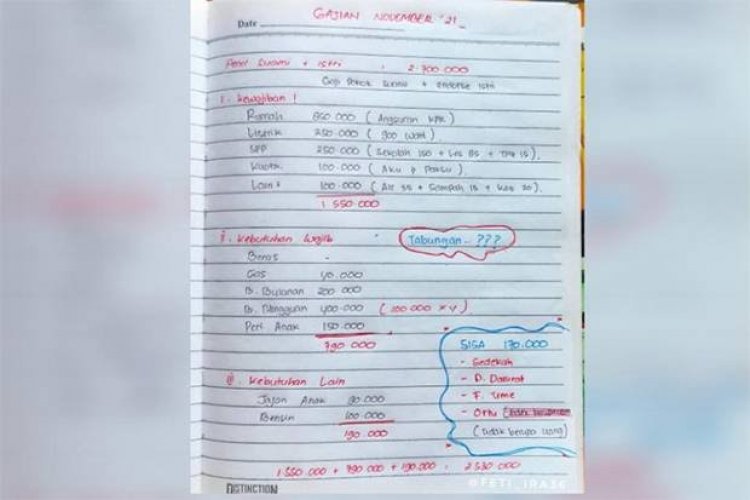 GAJIAN NOVEMBER '21
Date
Peng Suami + Istri : 2.700.000
Gaji Pokok Suami + endorse istri
I. Kewajiban !
Rumah 850.000 ( Angsuran KPR )
Listrik 250.000 ( 900 Watt )
SPP 250.000 ( Sekolah 150 + Les 85 + 15 ).
Kuota 100.000 ( Aku & Paksu )
Lain² 100.000 ( Air 55 + Sampah 15 + Kas 30 ).
1.550.000
II. Kebutuhan Wajib
Tabungan - ???
Beras -
Gas 40.000
B. Bulanan 200.000
B. Mingguan 400.000 ( 100.000 x 4 )
Perl Anak 150.000
790.000
SISA 170.000
- Sedekah
- D. Darurat
- F. Time
- Ortu
(tidak berupa uang)
III. Kebutuhan Lain
Jajan Anak 90.000
Bensin 100.000
190.000
1.550.000 + 790.000 + 190.000 : 2.530.000
@FETI_IRA36
DISTINCTION